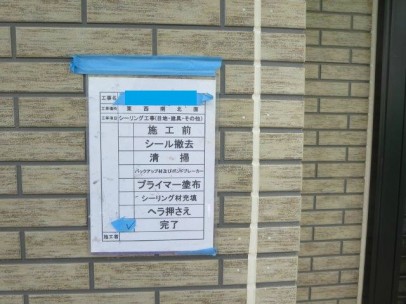 工事名
工事箇所 東 西 南 北 面
工事項目 シーリング工事(目地・建具・その他)
施 工 前
シール撤去
清 掃
バックアップ材及びボンドブレーカー
プライマー塗布
シーリング材充填
ヘラ押さえ
完了
施工者